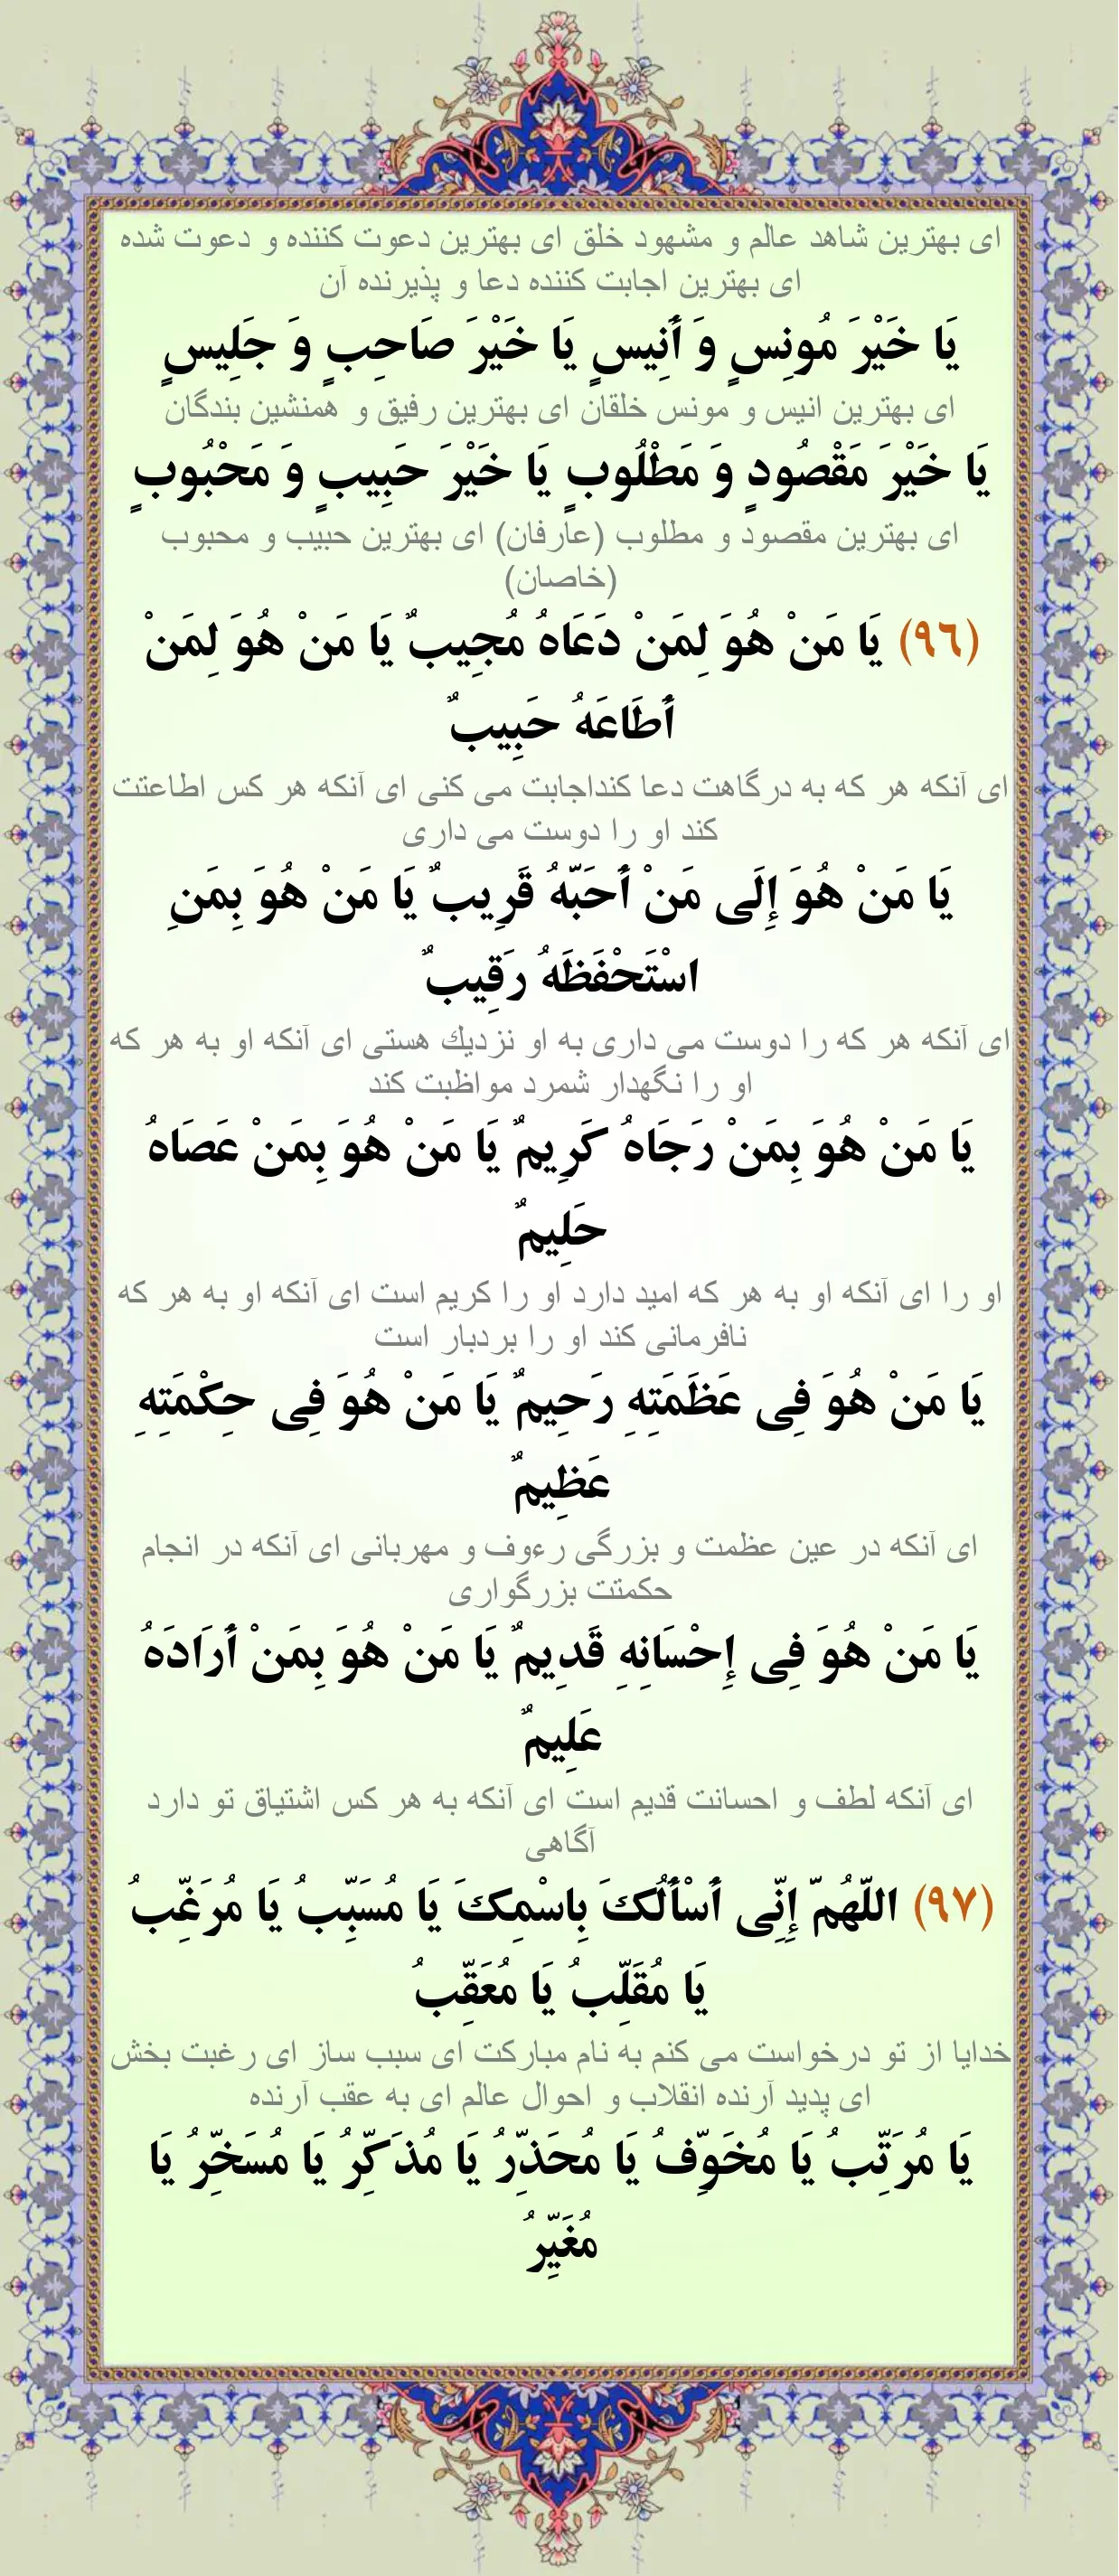 ای بهترین شاهد عالم و مشهود خلق ای بهترین دعوت کننده و دعوت شده
ای بهترین اجابت کننده دعا و پذیرنده آن
يَا خَيْرَ مُونِسٍ وَ أَنِيسٍ يَا خَيْرَ صَاحِبٍ وَ جَلِيسٍ
ای بهترین انیس و مونس خلقان ای بهترین رفیق و همنشین بندگان
يَا خَيْرَ مَقْصُودٍ وَ مَطْلُوبٍ يَا خَيْرَ حَبِيبٍ وَ مَحْبُوبٍ
ای بهترین مقصود و مطلوب (عارفان) ای بهترین حبیب و محبوب
(خاصان)
(٩٦) يَا مَنْ هُوَ لِمَنْ دَعَاهُ مُجِيبٌ يَا مَنْ هُوَ لِمَنْ
أَطَاعَهُ حَبِيبٌ
ای آنکه هر که به درگاهت دعا کنداجابت می کنی ای آنکه هر کس اطاعتت
کند او را دوست می داری
يَا مَنْ هُوَ إِلَى مَنْ أَحَبَّهُ قَرِيبٌ يَا مَنْ هُوَ بِمَنِ
اسْتَحْفَظَهُ رَقِيبٌ
ای آنکه هر که را دوست می داری به او نزدیك هستی ای آنکه او به هر که
او را نگهدار شمرد مواظبت کند
يَا مَنْ هُوَ بِمَنْ رَجَاهُ كَرِيمٌ يَا مَنْ هُوَ بِمَنْ عَصَاهُ
حَلِيمٌ
او را ای آنکه او به هر که امید دارد او را کریم است ای آنکه او به هر که
نافرمانی کند او را بردبار است
يَا مَنْ هُوَ فِی عَظَمَتِهِ رَحِيمٌ يَا مَنْ هُوَ فِی حِكْمَتِهِ
عَظِيمٌ
ای آنکه در عین عظمت و بزرگی رءوف و مهربانی ای آنکه در انجام
حکمتت بزرگواری
يَا مَنْ هُوَ فِی إِحْسَانِهِ قَدِيمٌ يَا مَنْ هُوَ بِمَنْ أَرَادَهُ
عَلِيمٌ
ای آنکه لطف و احسانت قدیم است ای آنکه به هر کس اشتیاق تو دارد
آگاهی
(٩٧) اللّهُمّ إِنِّی أَسْأَلُكَ بِاسْمِكَ يَا مُسَبِّبُ يَا مُرَغِّبُ
يَا مُقَلِّبُ يَا مُعَقِّبُ
خدایا از تو درخواست می کنم به نام مبارکت ای سبب ساز ای رغبت بخش
ای پدید آرنده انقلاب و احوال عالم ای به عقب آرنده
يَا مُرَتِّبُ يَا مُخَوِّفُ يَا مُحَذِّرُ يَا مُذَكِّرُ يَا مُسَخِّرُ يَا
مُغَيِّرُ